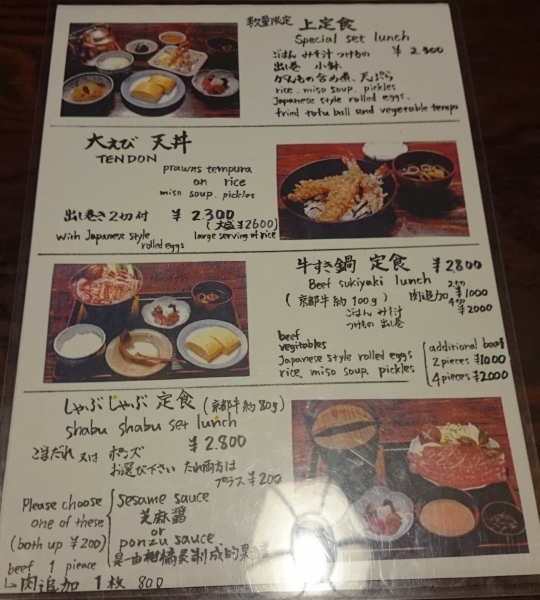 数量限定 上定食
Special set lunch
ごはん みそ汁 つけもの ¥2.900
出し巻 小鉢
がんもの含め煮、天ぷら
rice. miso soup. pickles
Japanese style rolled eggs.
fried tofu ball and vegetable tempa
大えび 天丼
TENDON
prawns tempura
on rice
miso soup. pickles
出し巻き2切付 ¥2.300
(大盛¥2600)
with Japanese style
rolled eggs
large serving of rice
牛すき鍋 定食 ¥2800
Beef sukiyaki lunch
(京都牛約100g) 肉追加 2切 ¥1000
4切 ¥2000
ごはん みそ汁
つけもの 出し巻
beef
vegitables
Japanese style rolled eggs
rice. miso soup. pickles
additional beef
2 pieces ¥1000
4 pieces ¥2000
しゃぶしゃぶ 定食 (京都牛約80g)
shabu shabu set lunch
¥2.800
ごまだれ 又は ポンズ
お選び下さい たれ両方は
プラス ¥200
Please choose
one of these
(both up ¥200)
sesame sauce
芝麻醤
or
ponzu sauce
是由柑橘类制成的果
beef 1 pience
肉追加 1枚 800